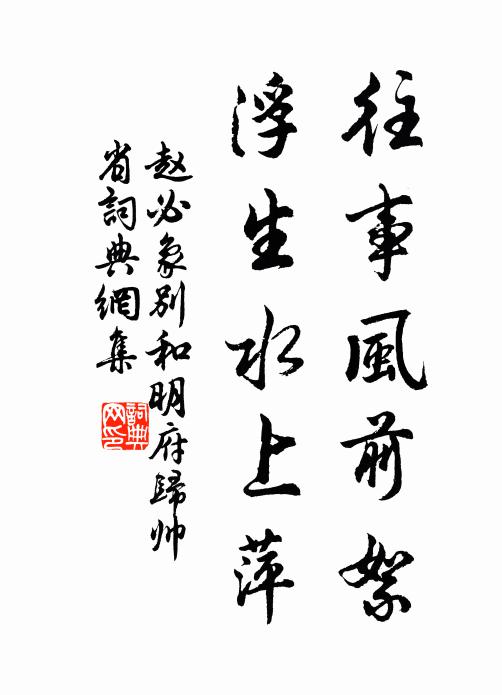 往事風前絮
浮生水上萍
赵必象别和明府歸帅
省詞典網集
詞典网印